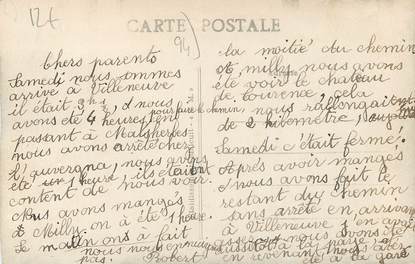 12f
94)
CARTE POSTALE
Chers parents
Samedi nous sommes
arrivé a Villeneuve
il était 3h½, et nous
avons été 4 heures, en
passant à Malsherbes
nous avons arrêté chez
l'auvergna, nous avons
été 1 heure, ils étaient
content de nous voir.
Nous avons mangés
à Milly. on a été 1 heure.
Le matin ons à fait
nous nous en
pas. Robert
la moitié du chemin
A, milly, nous avons
été voir le chateau
de tourence, cela
pour faire le chemin, nous rallongait
de 2 kilomètre,
Samedi c'était fermé.
Après avoir mangés
nous avons fait le
restant du chemin
sans arrête en, arrivan
à Villeneuve on avait
nous avons été
en revenant, nous
été à la gare